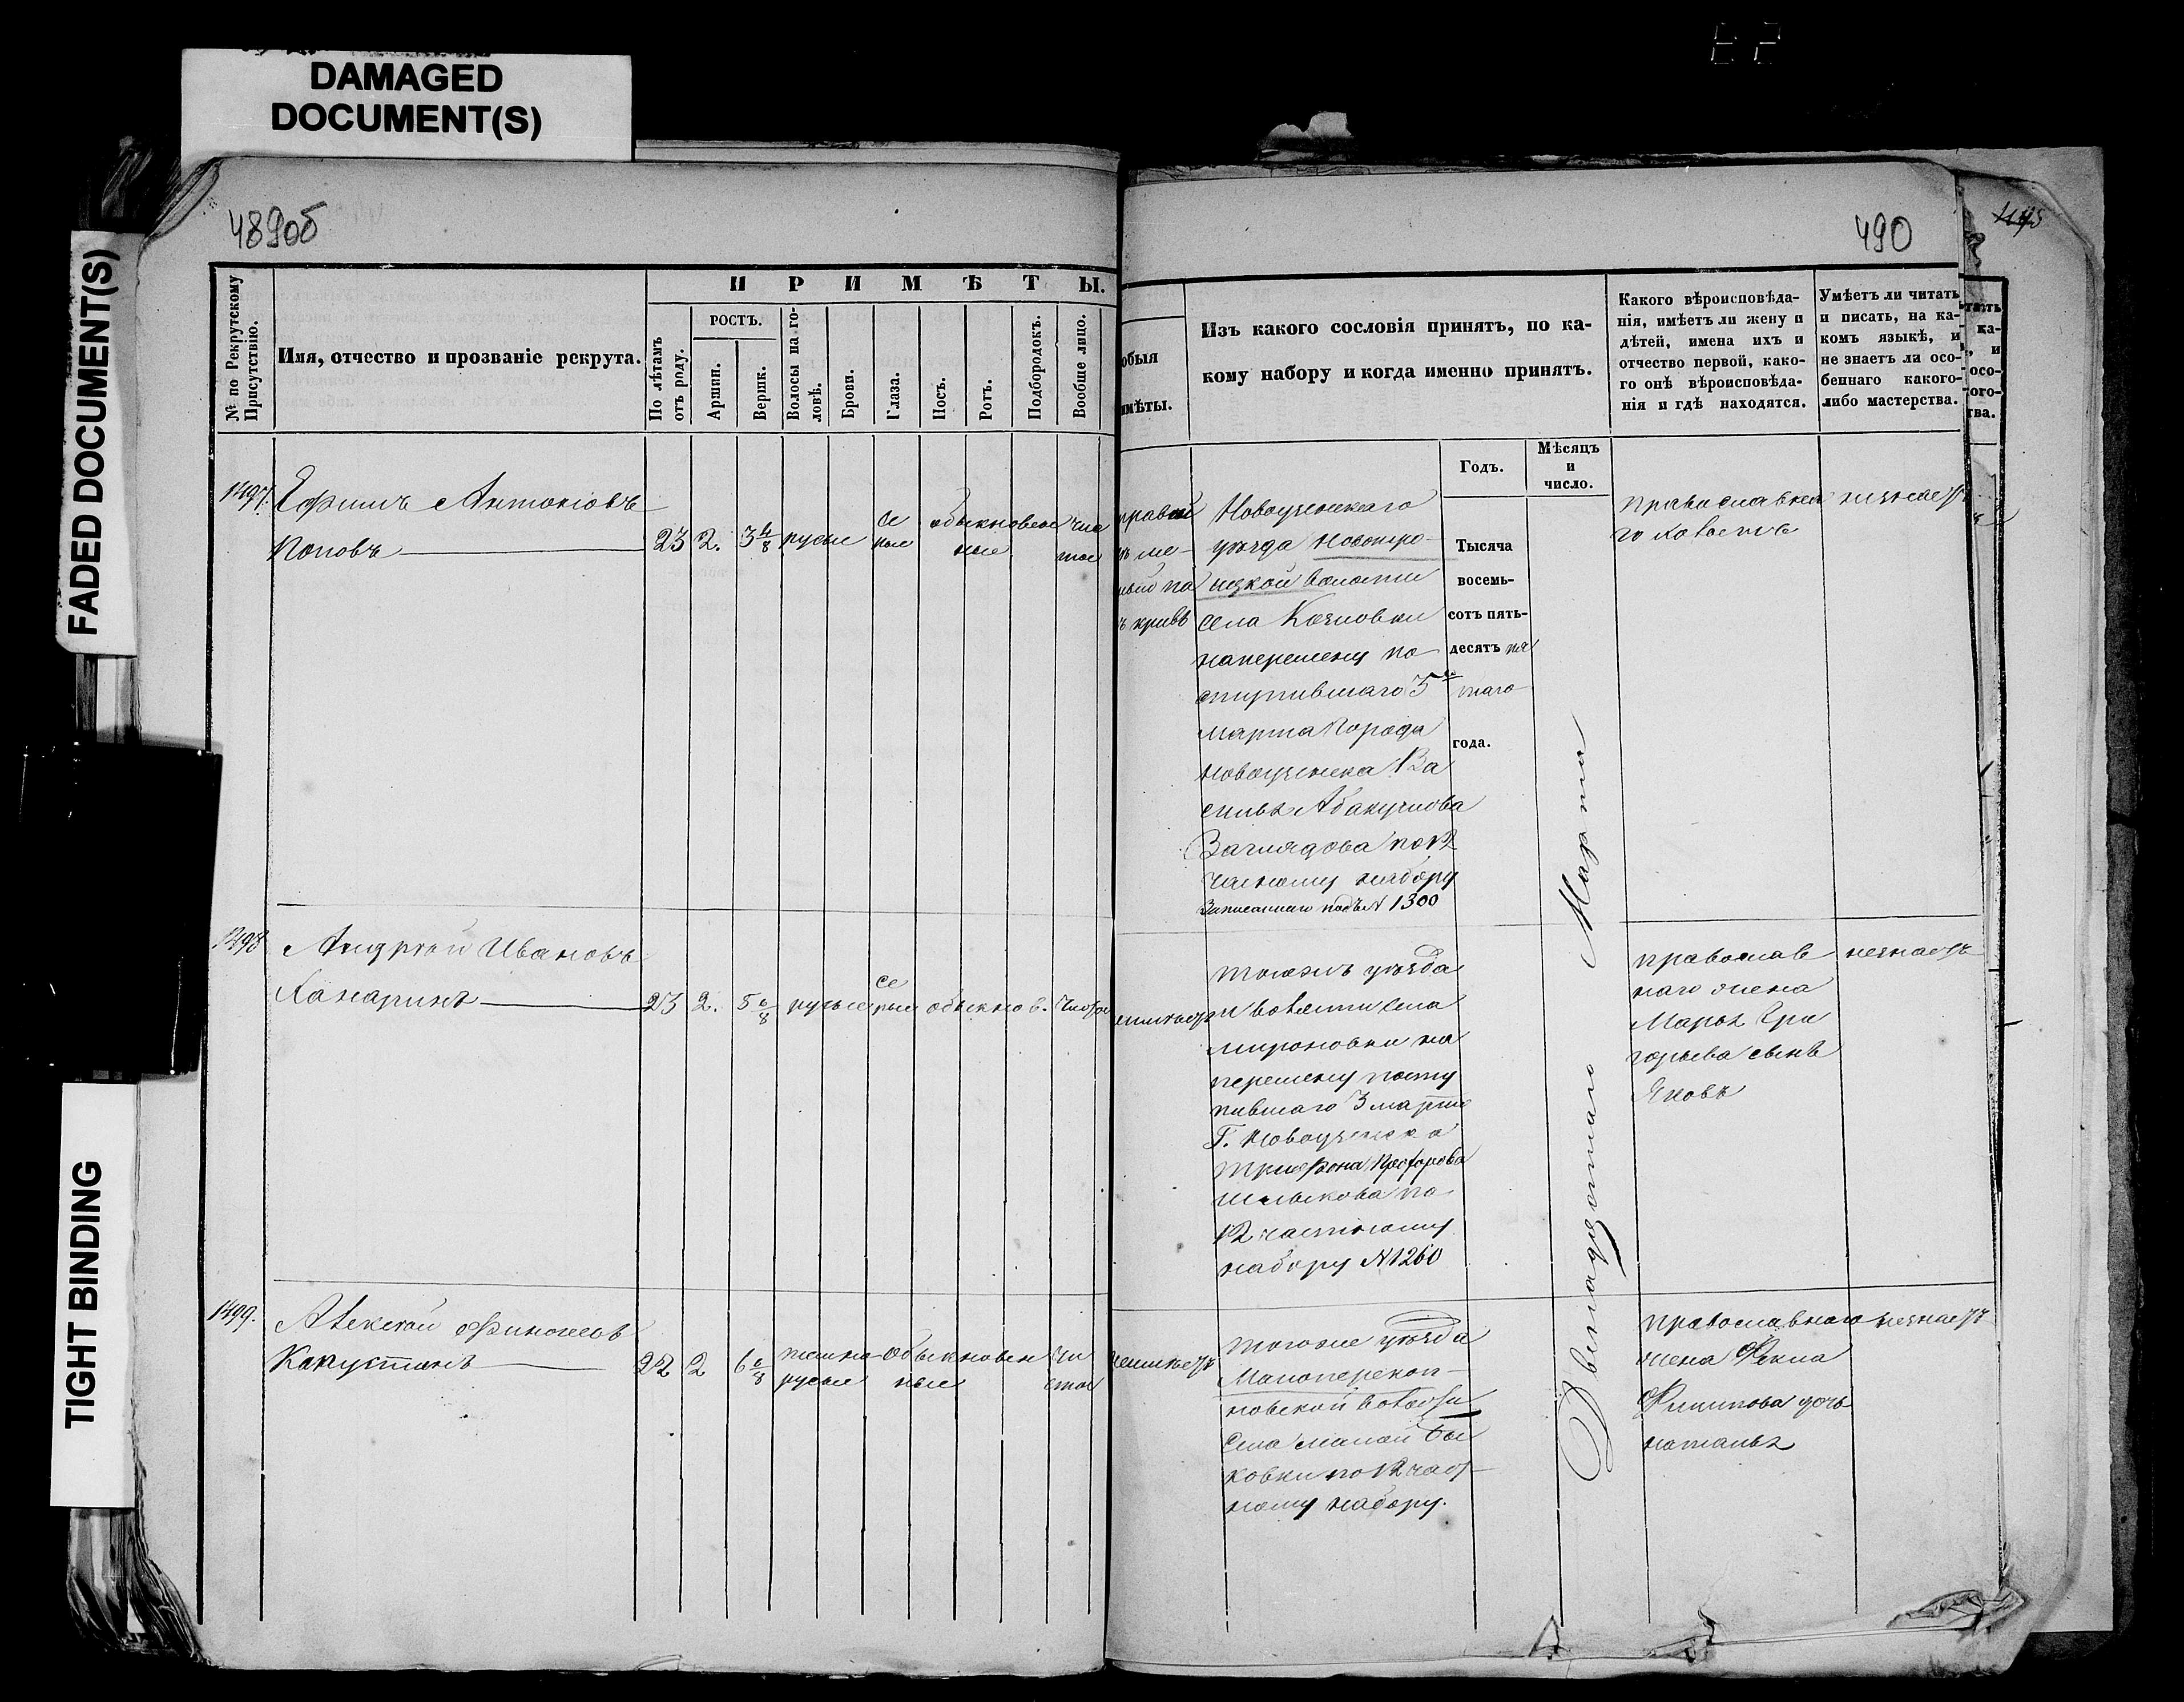 DAMAGED
DOCUMENT(S)
FADED DOCUMENT(S)
TIGHT BINDING
489об
490
№ по Рекрутскому
Присутствію.
Имя, отчество и прозваніе рекрута.
П Р И М Ѣ Т Ы.
По лѣтамъ
отъ роду.
РОСТЪ.
Аршин.
Вершк.
Волосы на го-
ловѣ.
Брови.
Глаза.
Носъ.
Ротъ.
Подбородокъ.
Вообще лицо.
обыя
имѣты.
Изъ какого сословія принятъ, по ка-
кому набору и когда именно принятъ.
Годъ.
Мѣсяцъ
и
число.
Какого вѣроисповѣда-
нія, имѣетъ ли жену и
дѣтей, имена ихъ и
отчество первой, како-
го онѣ вѣроисповѣда-
нія и гдѣ находятся.
Умѣетъ ли читать
и писать, на ка-
комъ языкѣ, и
не знаетъ ли осо-
беннаго какого-
либо мастерства.
1497.
Ефимъ Антоновъ
Поповъ
23 2. 3 4/8 русые
се
рые
обыкновен
ные
чис
тое
Новоузенскаго
уѣзда Новотро-
ицкой волости
села
на перемену по
ступившаго 3го
марта города
Новоузенска Ва
силья Абакумова
Заглядова по 12
частному набору
Записаннаго подъ № 1300
Тысяча
восемь-
сотъ пять-
десятъ пя
таго
года.
Двенадцатаго Марта
православна
го холостъ
незнаетъ
1498
Андрей Ивановъ
23 2. 5 6/8 русые
се
рые
обыкнов. чистое
неимеетъ
тогожъ уѣзда
и волости села
Мироновки на
перемену посту
пившаго 3 марта
Г. Новоузенска
Трифона
по
12 частному
набору № 1260
православ
наго жена
Марья Гри
горьева сынъ
Яковъ
незнаетъ
1499.
Алексей
Капустинъ
22 2 6 6/8
темно-
русые
обыкновен
ные
чи
стое
неимеетъ
тогоже уѣзда
Малоперекоп-
новской волости
села Малой Бы
ковки по 12 част-
ному набору.
православнаго
жена Фекла
Филипова дочь
Наталья
незнаетъ